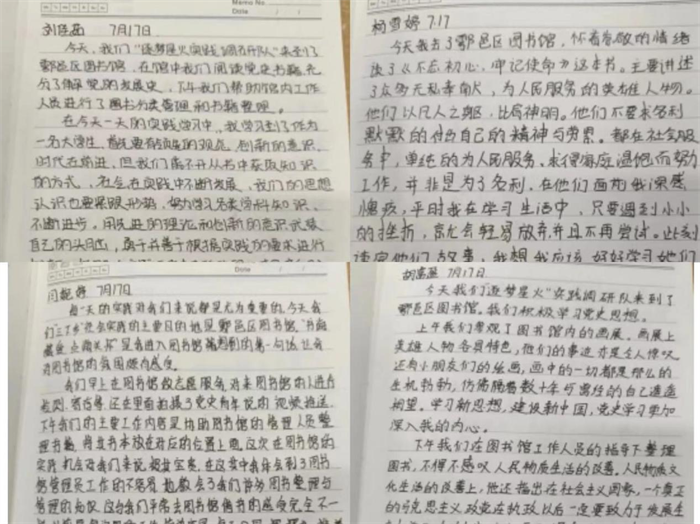 Memo No.
Date
刘 7月17日
今天,我们"逐梦星火实践调研队"来到了
鄠邑区图书馆,在馆中我们阅读党史书籍,充
分了解党的发展史,下午我们帮助馆内工作
人员进行了图书分类管理和书籍整理。
在今天一天的实践学习中,我学习到了作为
一名大学生,首先要有的观念,创新的意识,
时代在前进,但我们离不开从书中获取知识
的方式,社会在实践中不断发展,我们的思想
认识也要紧跟形势,努力学习各类学科知识,
不断进步。用先进的理论和创新的意识武装
自己的头脑,勇于并善于根据实践的要求进行
杨雪婷 7.17
今天我去了鄠邑区图书馆,怀着崇敬的情绪
读了《不忘初心,牢记使命》这本书。主要讲述
了众多无私奉献,为人民服务的英雄人物。
他们以凡人之躯,比肩神明。他们不要求名利
默默的付出自己的精神与劳累。都在社会服
务中,单纯的为人民服务、
工作,并非是为了名利,在他们面前我深感
愧疚,平时我在学习生活中,只要遇到小小
的挫折,就会轻易放弃并且不再尝试。此刻
读完他们故事,我想我应该好好学习他们
Date
闫 婷 7月17日
每一天的实践对我们来说都是尤为重要的,今天我
们三下乡社会实践的主要目的地是鄠邑区图书馆,"书
是我进入图书馆看到的第一句话,让我
对图书馆的氛围颇有感受。
我们早上在图书馆做志愿服务,对来图书馆的人进行
还在里面拍摄了党史青年说的视频推送,
下午我们的主要工作内容是协助图书馆的管理人员整
理书籍,将每书本放在对应的位置上面,这次在图书馆的
实践机会对我们来说,在这实中我体会到了图书
馆管理员工作的不容易,也教会了我们许多图书整理与
管理的知识,这与我们平常去图书馆借书的感受完全不一
胡 7月17日
今天我们"逐梦星火"实践调研队来到了
鄠邑区图书馆。我们积极学习党史思想。
上午我们参观了图书馆内的画展。画展上
英雄人物各具特色,他们的事迹亦是令人惊叹
还有小朋友们的绘画,画中的一切都是那么的
生机勃勃,仿佛隔着数十年与曾经的自己遥遥
相望。学习新思想,建设新中国,党史学习更加
深入我的内心。
下午我们在图书馆工作人员的指导下整理
图书,不得不感叹人民物质生活的改善。人民物质文
化生活的改善上,他还指出在社会主义国家,一个真正
的马克思主义政党在执政以后一定要致力于发展生